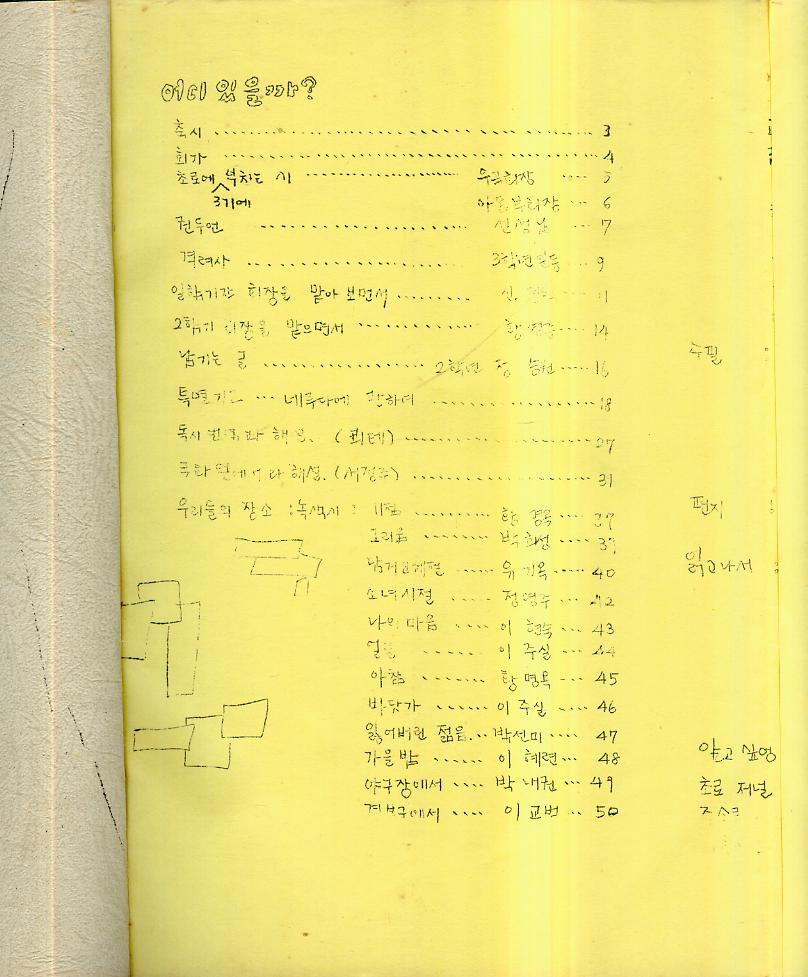 어디 있을까?
축시 ........ 3
회가 ........ 4
초로에 부치는 시 ........ 5
3기에
부회장 .... 6
권두언 ........ 7
격려사 ........ 3학년일동 ... 9
일학기간 회장을 맡아 보면서 ........ 11
2학기 회장을 맡으면서 ........ 14
남기는 글 ........ 2학년 정 ..... 16
특별기고 ... 네루다에 관하여 ........ 18
해설. (괴테) ........ 27
해설. (서정주) ........ 31
우리들의 장소 : 녹색시 : ........ 황 명옥 .... 37
그리움 ........ 박 희성 ....
계절 ........ 유 기옥 ..... 40
소녀시절 ..... 정영주 ... 42
나의 마음 .... 이 현숙 ... 43
...... 이 주실 ... 44
아침 ...... 황 명옥 ... 45
바닷가 ...... 이 주실 .... 46
잃어버린 젊음... 박선미 .... 47
가을밤 ...... 이 혜련... 48
야구장에서 .... 박 내권... 49
에서 .... 이 교범 .. 50
수필
편지
읽고나서
알고 싶영
초로 저널